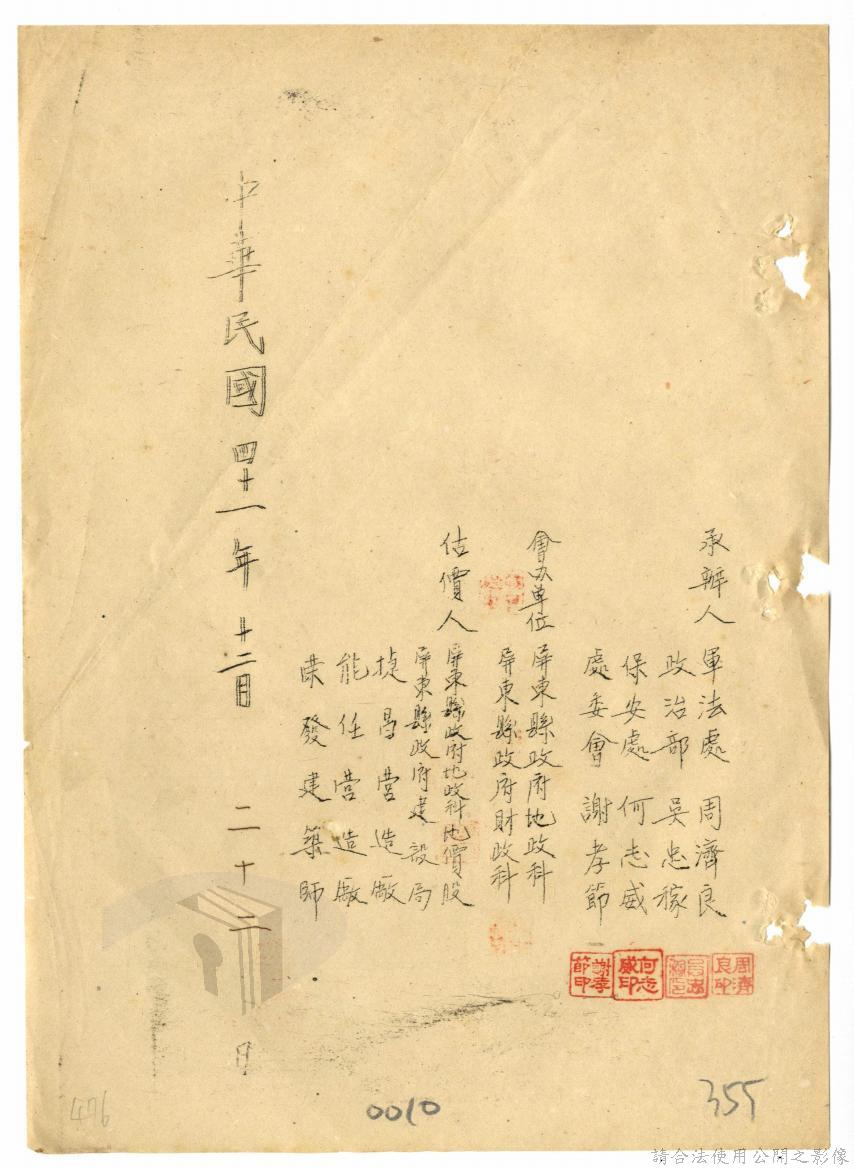 承辦人
軍法處 周濟良
政治部 吳忠稼
保安處 何志威
處委會 謝孝節
會办單位
屏東縣政府地政科
屏東縣政府財政科
估價人
屏東縣政府地政科地價股
屏東縣政府建設局
捷昌营造廠
能任营造廠
荣發建築師
中華民國四十一年十二月二十二日
周濟良印
何志威印
謝孝節印
476
0010
355
請合法使用公開之影像